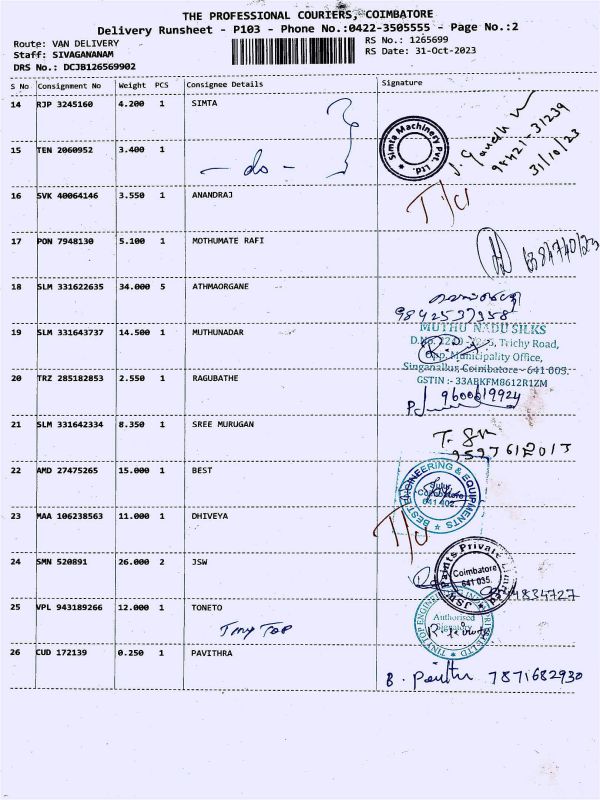 THE PROFESSIONAL COURIERS, COIMBATORE
Delivery Runsheet - P103 - Phone No.:0422-3505555 - Page No.:2
Route: VAN DELIVERY
RS No.: 1265699
Staff: SIVAGANANAM
RS Date: 31-Oct-2023
DRS No.: DCJB126569902
S No Consignment No Weight PCS Consignee Details Signature
14 RJP 3245160 4.200 1 SIMTA
Simta Machinery Pvt. Ltd.
J. Ganesh
98421-31239
31/10/23
15 TEN 2060952 3.400 1
- do -
16 SVK 40064146 3.550 1 ANANDRAJ
17 PON 7948130 5.100 1 MOTHUMATE RAFI
18 SLM 331622635 34.000 5 ATHMAORGANE
9842537358
19 SLM 331643737 14.500 1 MUTHUNADAR
MUTHU NADU SILKS
Trichy Road,
Opp. Municipality Office,
Singanallur, Coimbatore - 641 005.
GSTIN :- 33APKFM8612R1ZM
20 TRZ 285182853 2.550 1 RAGUBATHE
9600619924
21 SLM 331642334 8.350 1 SREE MURUGAN
22 AMD 27475265 15.000 1 BEST
BEST ENGINEERING & EQUIPMENTS
Sulur,
Coimbatore
641 402.
23 MAA 106238563 11.000 1 DHIVEYA
24 SMN 520891 26.000 2 JSW
JSW Paints Private Limited
Coimbatore
641 035.
25 VPL 943189266 12.000 1 TONETO
Tiny Top
Authorised
Signatory
26 CUD 172139 0.250 1 PAVITHRA
7871682930